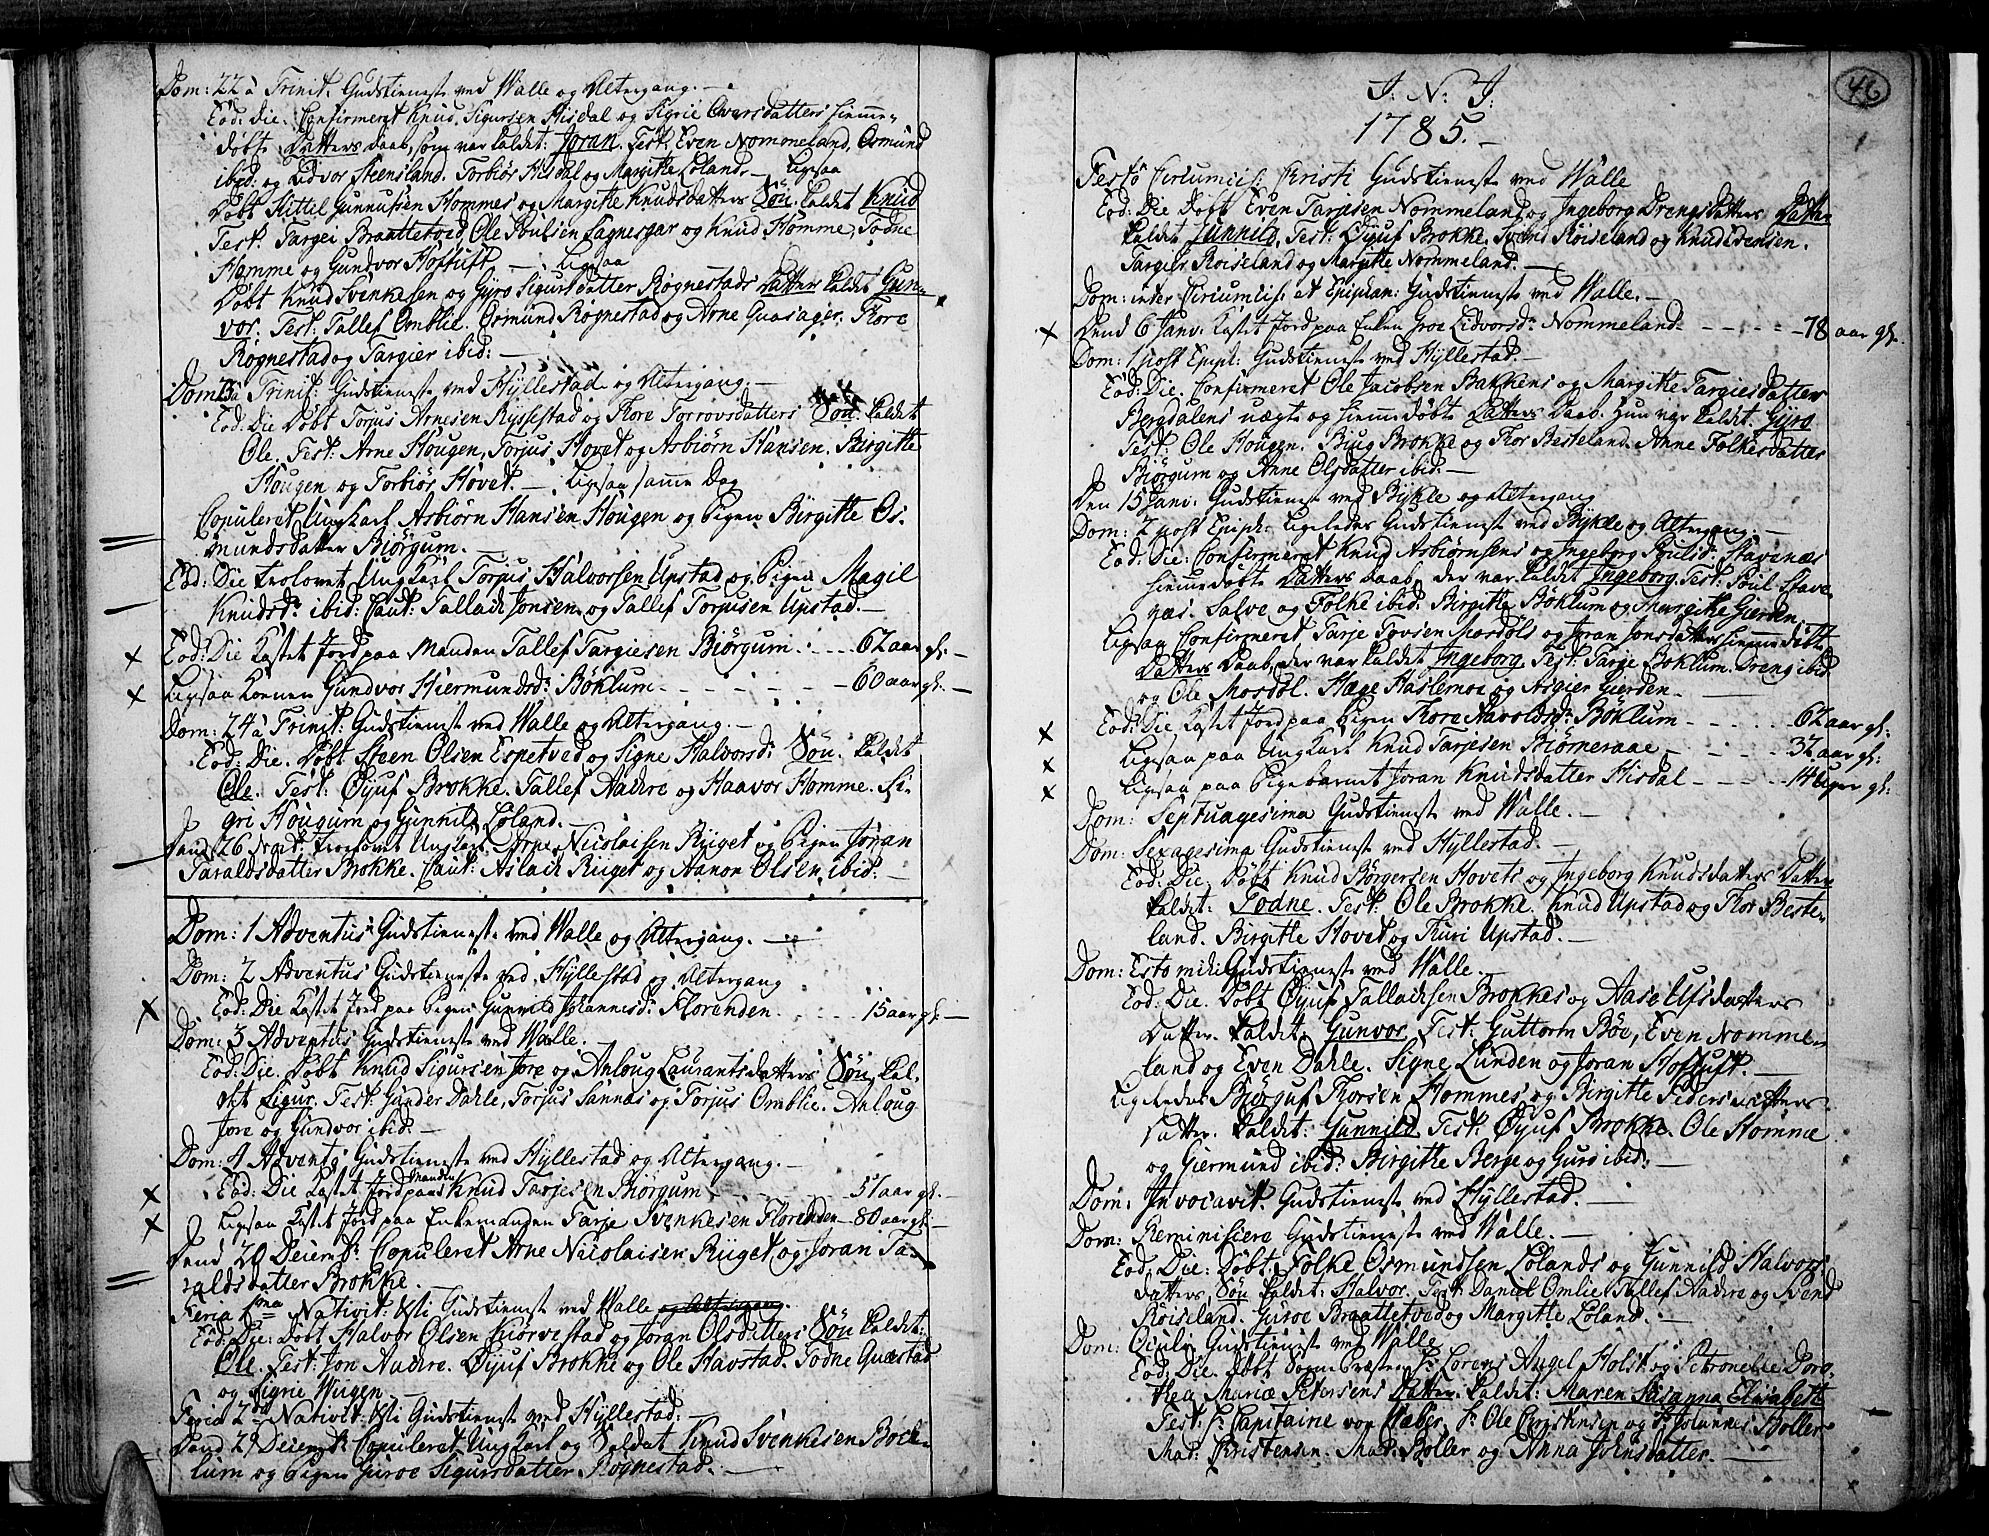 Dom: 22 à Trinit. Gudstieneste ved Walle og Altergang. —
Eod: die. Confirmeret Knud Sigursen Hisdal og Sigrie Ovarsdatters hiemme-
døbte Datters daab, som var kaldet: Joran. Test. Even Nommeland, Osmund
ibid: og Lidvor Steensland. Torbiør Hisdal og Margitte Løland. — Ligesaa
Døbt Kittil Gunnufsen Hommes og Margitte Knudsdatters Søn. kaldet Knud
Test: Targei Braattetved, Ole Poulsen Lagnesgar og Knud Homme, Todne
Homme og Gundvor Hoftuft — Ligsaa
Døbt Knud Svenkesen og Gyro Sigursdatter Rognestads Datter kaldet Gun-
vor. Test: Tallef Omblie. Osmund Rognestad og Arne Guasager. Thore
Rognestad og Targier ibid: —
Dom: 23 à Trinit: Gudstieneste ved Hyllestad og Altergang. —
Eod: Die Døbt Torjus Arnesen Ryssestad og Thore Torrovsdatters Søn kaldet
Ole. Test: Arne Hougen, Torjus Hovet og Asbiørn Hansen. Birgitte
Hougen og Torbiør Hovet. — Ligsaa samme Dag
Copuleret Ungkarl Asbiørn Hansen Hougen og Pigen Birgitte Os-
mundsdatter Biørgum.
Eod: Die trolovet Ungkarl Torjus Halvorsen Upstad og Pigen Magil
Knudsdr ibid: Caut: Tallach Jonsen og Tallef Torjusen Upstad. —
Eod: Die Kastet Jord paa Manden Tallef Targiesen Biørgum . . — 62 aar gl. —
Ligsaa Konen Gundvor Hiermundsdr Bøklum - - - - - 60 aar gl. —
Dom: 24 à Trinit: Gudstieneste ved Walle og Altergang. —
Eod: Die. Døbt Steen Olsen Espetved og Signe Halvorsdr Søn. kaldet
Ole. Test: Øyuf Brokke. Tallef Aadere og Haavor Homme. Si-
gri Hougum og Gunnild Løland. —
Dend 26 Novbr: trolovet Ungkarl Arne Nicolaisen Riiget og Pigen Joran
Taraldsdatter Brokke. Caut: Aslach Riiget og Aanon Olsen ibid. —
Dom: 1 Adventus Gudstieneste ved Walle og Altergang. —
Dom: 2 Adventus Gudstieneste ved Hyllestad og Altergang
Eod: Die Kastet Jord paa Pigen Gunnild Johannisdr Florenden. - - - 15 aar gl. —
Dom: 3 Adventus Gudstieneste ved Walle. —
Eod: Die. Døbt Knud Sigursen Jore og Anloug Laurantsdatters Søn kal-
det Sigur. Test: Gunder Dahle, Torjus Sannas og Torjus Omblie. Anloug
Jore og Gundvor ibid. —
Dom: 4 Adventus Gudstieneste ved Hyllestad og Altergang. —
Eod: Die Kastet Jord paa Manden Knud Tarjesen Biørgum - - - 51 aar gl. —
Ligsaa Kastet Jord paa Enkemanden Tarje Svenkesen Florenden — 80 aar gl —
Dend 20 Decembr. Copuleret Arne Nicolaisen Riiget og Joran Ta-
raldsdatter Brokke.
Feria 1ma Nativit. Xsti Gudstieneste ved Walle og Altergang.
Eod: Die: Døbt Halvor Olsen Kiørvestad og Joran Olsdatters Søn kaldet:
Ole. Test: Jon Aadere. Øyuf Brokke og Ole Havstad. Todne Quæstad
og Sigrie Wiigen
Feria 2da Nativit: Xsti Gudstieneste ved Hyllestad: —
Dend 29 Decembr. Copuleret Ungkarl og Soldat Knud Svenkesen Bøck-
lum og Pigen Guroe Sigursdatter Rognestad. —
46
J: N: J:
1785. —
Festo Circumcis: Christi Gudstieneste ved Walle
Eod: Die Døbt Even Tarjesen Nommeland og Ingeborg Drengsdatters Datter
kaldet Gunnild. Test: Øyuf Brokke. Svend Roiseland og Knud
Targier Roiseland og Margitte Nommeland. —
Dom: inter Circumcis: et Epiphan: Gudstieneste ved Walle. —
Dend 6 Janv. Kastet Jord paa Enken Groe Lidvorsdr Nommeland. - - - - 78 aar gl.
Dom: 1 post Epiph: Gudstieneste ved Hyllestad. —
Eod: Die. Confirmeret Ole Jacobsen Bakkens og Margitte Targiesdatter
Bergdalens uægte og hiemmedøbte Datters daab. hun var kaldet: Gyro
Test: Ole Hougen. Biug Brokke og Thor Besteland. Anne Folkesdatter
Biørgum og Anne Olsdatter ibid: —
Den 15 Janv. Gudstieneste ved Bykle og Altergang
Dom: 2 post Epiph: ligeledes Gudstieneste ved Bykle og Altergang. —
Eod: Die: Confirmeret Knud Asbiørnsens og Ingeborg Poulsdr. Stavenæs
hiemmedøbte Datters daab, der var kaldet Ingeborg. Test: Poul Stave-
næs. Salve og Folke ibid. Birgitte Bøklum og Margitte Gierden.
Ligsaa Confirmeret Tarje Tovsen Mosdøls og Joran Jonsdatters hiemmedøbte
Datters daab, der var kaldet Ingeborg. Test: Tarje Bøklum. Dreng ibid
og Ole Mosdøl. Hæge Haslemoe og Asgier Gierden. —
Eod: Die Kastet Jord paa Pigen Thore Aavoldsdr Bøklum - - - - 62 aar gl:
Ligsaa paa Ungkarl Knud Tarjesen Biørneraae - - - - 32 aar gl:
Ligsaa paa Pigebarnet Joran Knudsdatter Hisdal - - - - 14 Uger gl:
Dom: Septuagesima Gudstieneste ved Walle. —
Dom: Sexagesima Gudstieneste ved Hyllestad. —
Eod: Die. Døbt Knud Børgersen Hovets og Ingeborg Knudsdatters Datter
kaldet: Todne. Test: Ole Brokke. Knud Upstad og Thor Beste-
land. Birgitte Hovet og Kuri Upstad. —
Dom: Esto mihi Gudstieneste ved Walle.
Eod: Die. Døbt Øyuf Tallachsen Brokkes og Aase Ufsdatters
Datter. kaldet: Gunvor. Test: Guttorm Bøe, Even Nomme-
land og Even Dahle. Signe Lunden og Joran Hoftuft. —
Ligeledes Biørguf Thorsen Hommes og Birgitte Pedersdatters
Datter. kaldet: Gunnild. Test: Øyuf Brokke. Ole Homme
og Giermund ibid: Birgitte Berge og Guro ibid: —
Dom: Invocavit. Gudstieneste ved Hyllestad. —
Dom: Reminiscere Gudstieneste ved Walle. —
Eod: Die: Døbt Folke Osmundsen Lølands og Gunnild Halvors-
datters Søn kaldet: Halvor. Test: Daniel Omlie, Tallef Aadere og Svend
Roiseland. Guroe Braattetved og Margitte Løland. —
Dom: Oculi. Gudstieneste ved Walle
Eod: Die. Døbt Sogne Præsten Hr Lorens Angel Holst og Petronelle Doro-
thea Mariæ Petersens Datter. kaldet: Maren Susanna Elisabeth
Test: Hr Capitaine von Kaber, Hr Ole Christensen og Hr Johannes Boller
Mad: Christensen. Mad: Boller og Anna Johnsdatter. —